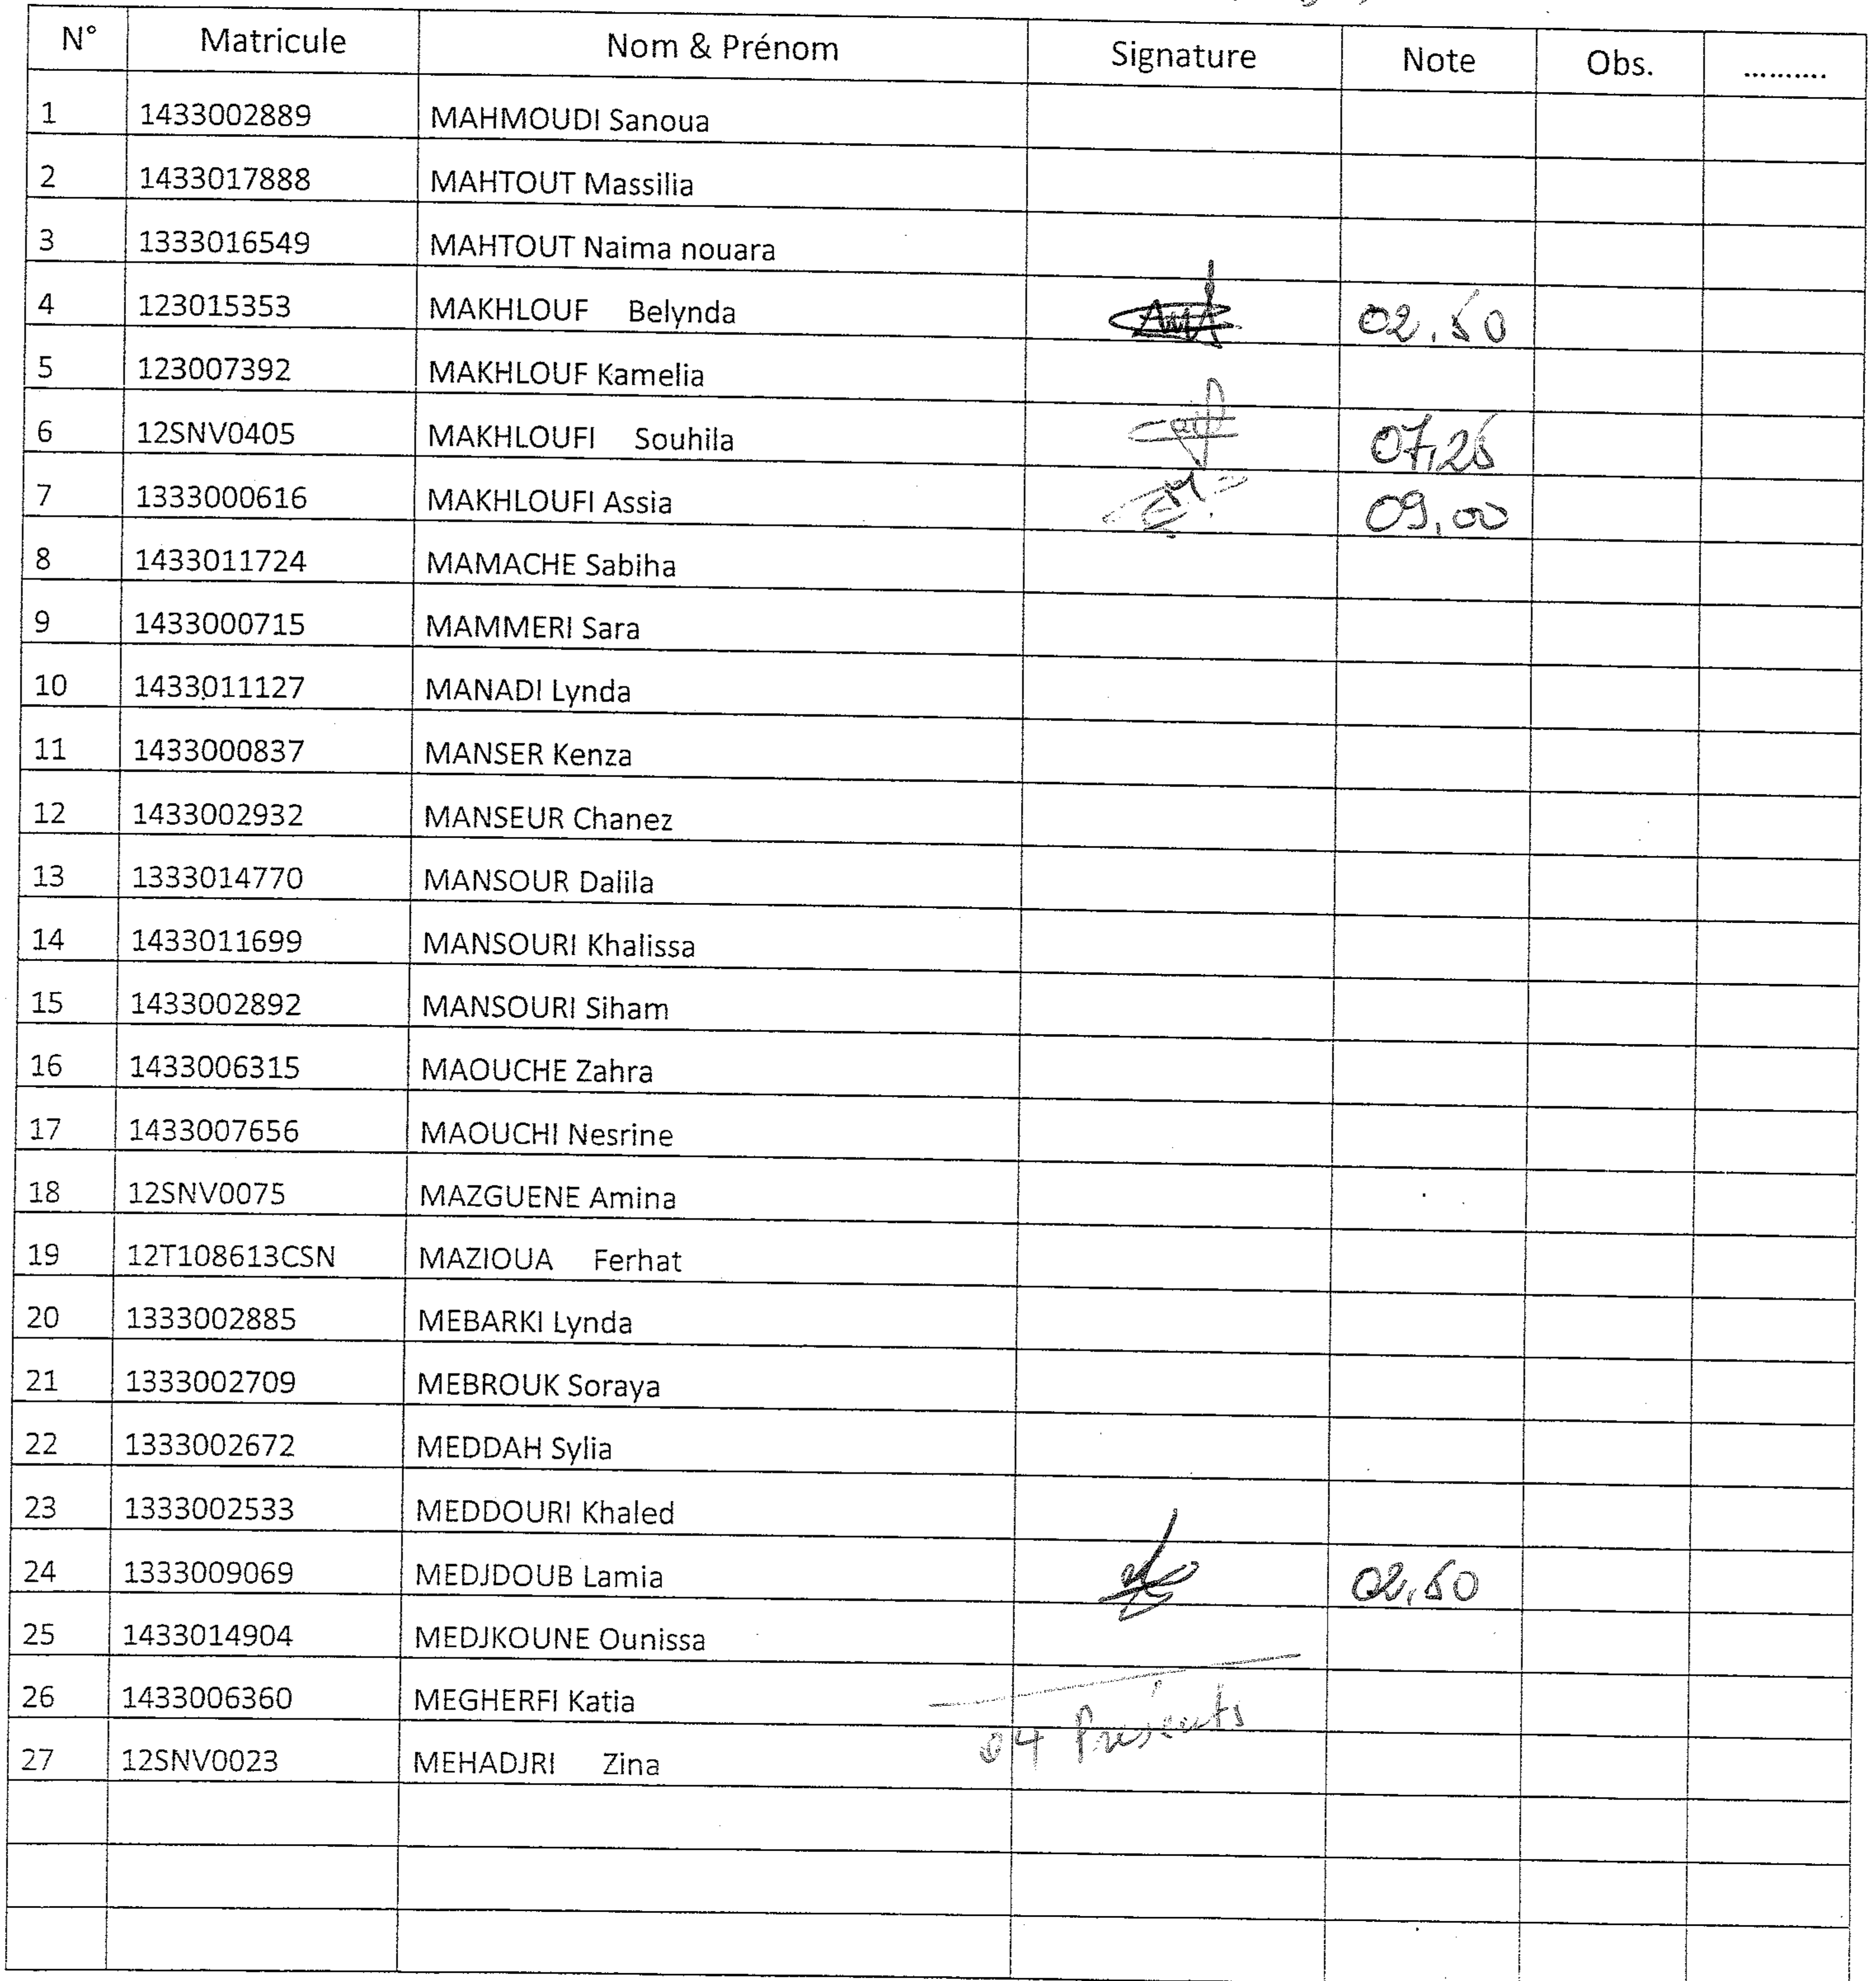 N° Matricule Nom & Prénom Signature Note Obs. ..........
1 1433002889 MAHMOUDI Sanoua
2 1433017888 MAHTOUT Massilia
3 1333016549 MAHTOUT Naima nouara
4 123015353 MAKHLOUF Belynda 02.50
5 123007392 MAKHLOUF Kamelia
6 12SNV0405 MAKHLOUFI Souhila 07,25
7 1333000616 MAKHLOUFI Assia 09,00
8 1433011724 MAMACHE Sabiha
9 1433000715 MAMMERI Sara
10 1433011127 MANADI Lynda
11 1433000837 MANSER Kenza
12 1433002932 MANSEUR Chanez
13 1333014770 MANSOUR Dalila
14 1433011699 MANSOURI Khalissa
15 1433002892 MANSOURI Siham
16 1433006315 MAOUCHE Zahra
17 1433007656 MAOUCHI Nesrine
18 12SNV0075 MAZGUENE Amina
19 12T108613CSN MAZIOUA Ferhat
20 1333002885 MEBARKI Lynda
21 1333002709 MEBROUK Soraya
22 1333002672 MEDDAH Sylia
23 1333002533 MEDDOURI Khaled
24 1333009069 MEDJDOUB Lamia 02,50
25 1433014904 MEDJKOUNE Ounissa
26 1433006360 MEGHERFI Katia
27 12SNV0023 MEHADJRI Zina
04 Présents